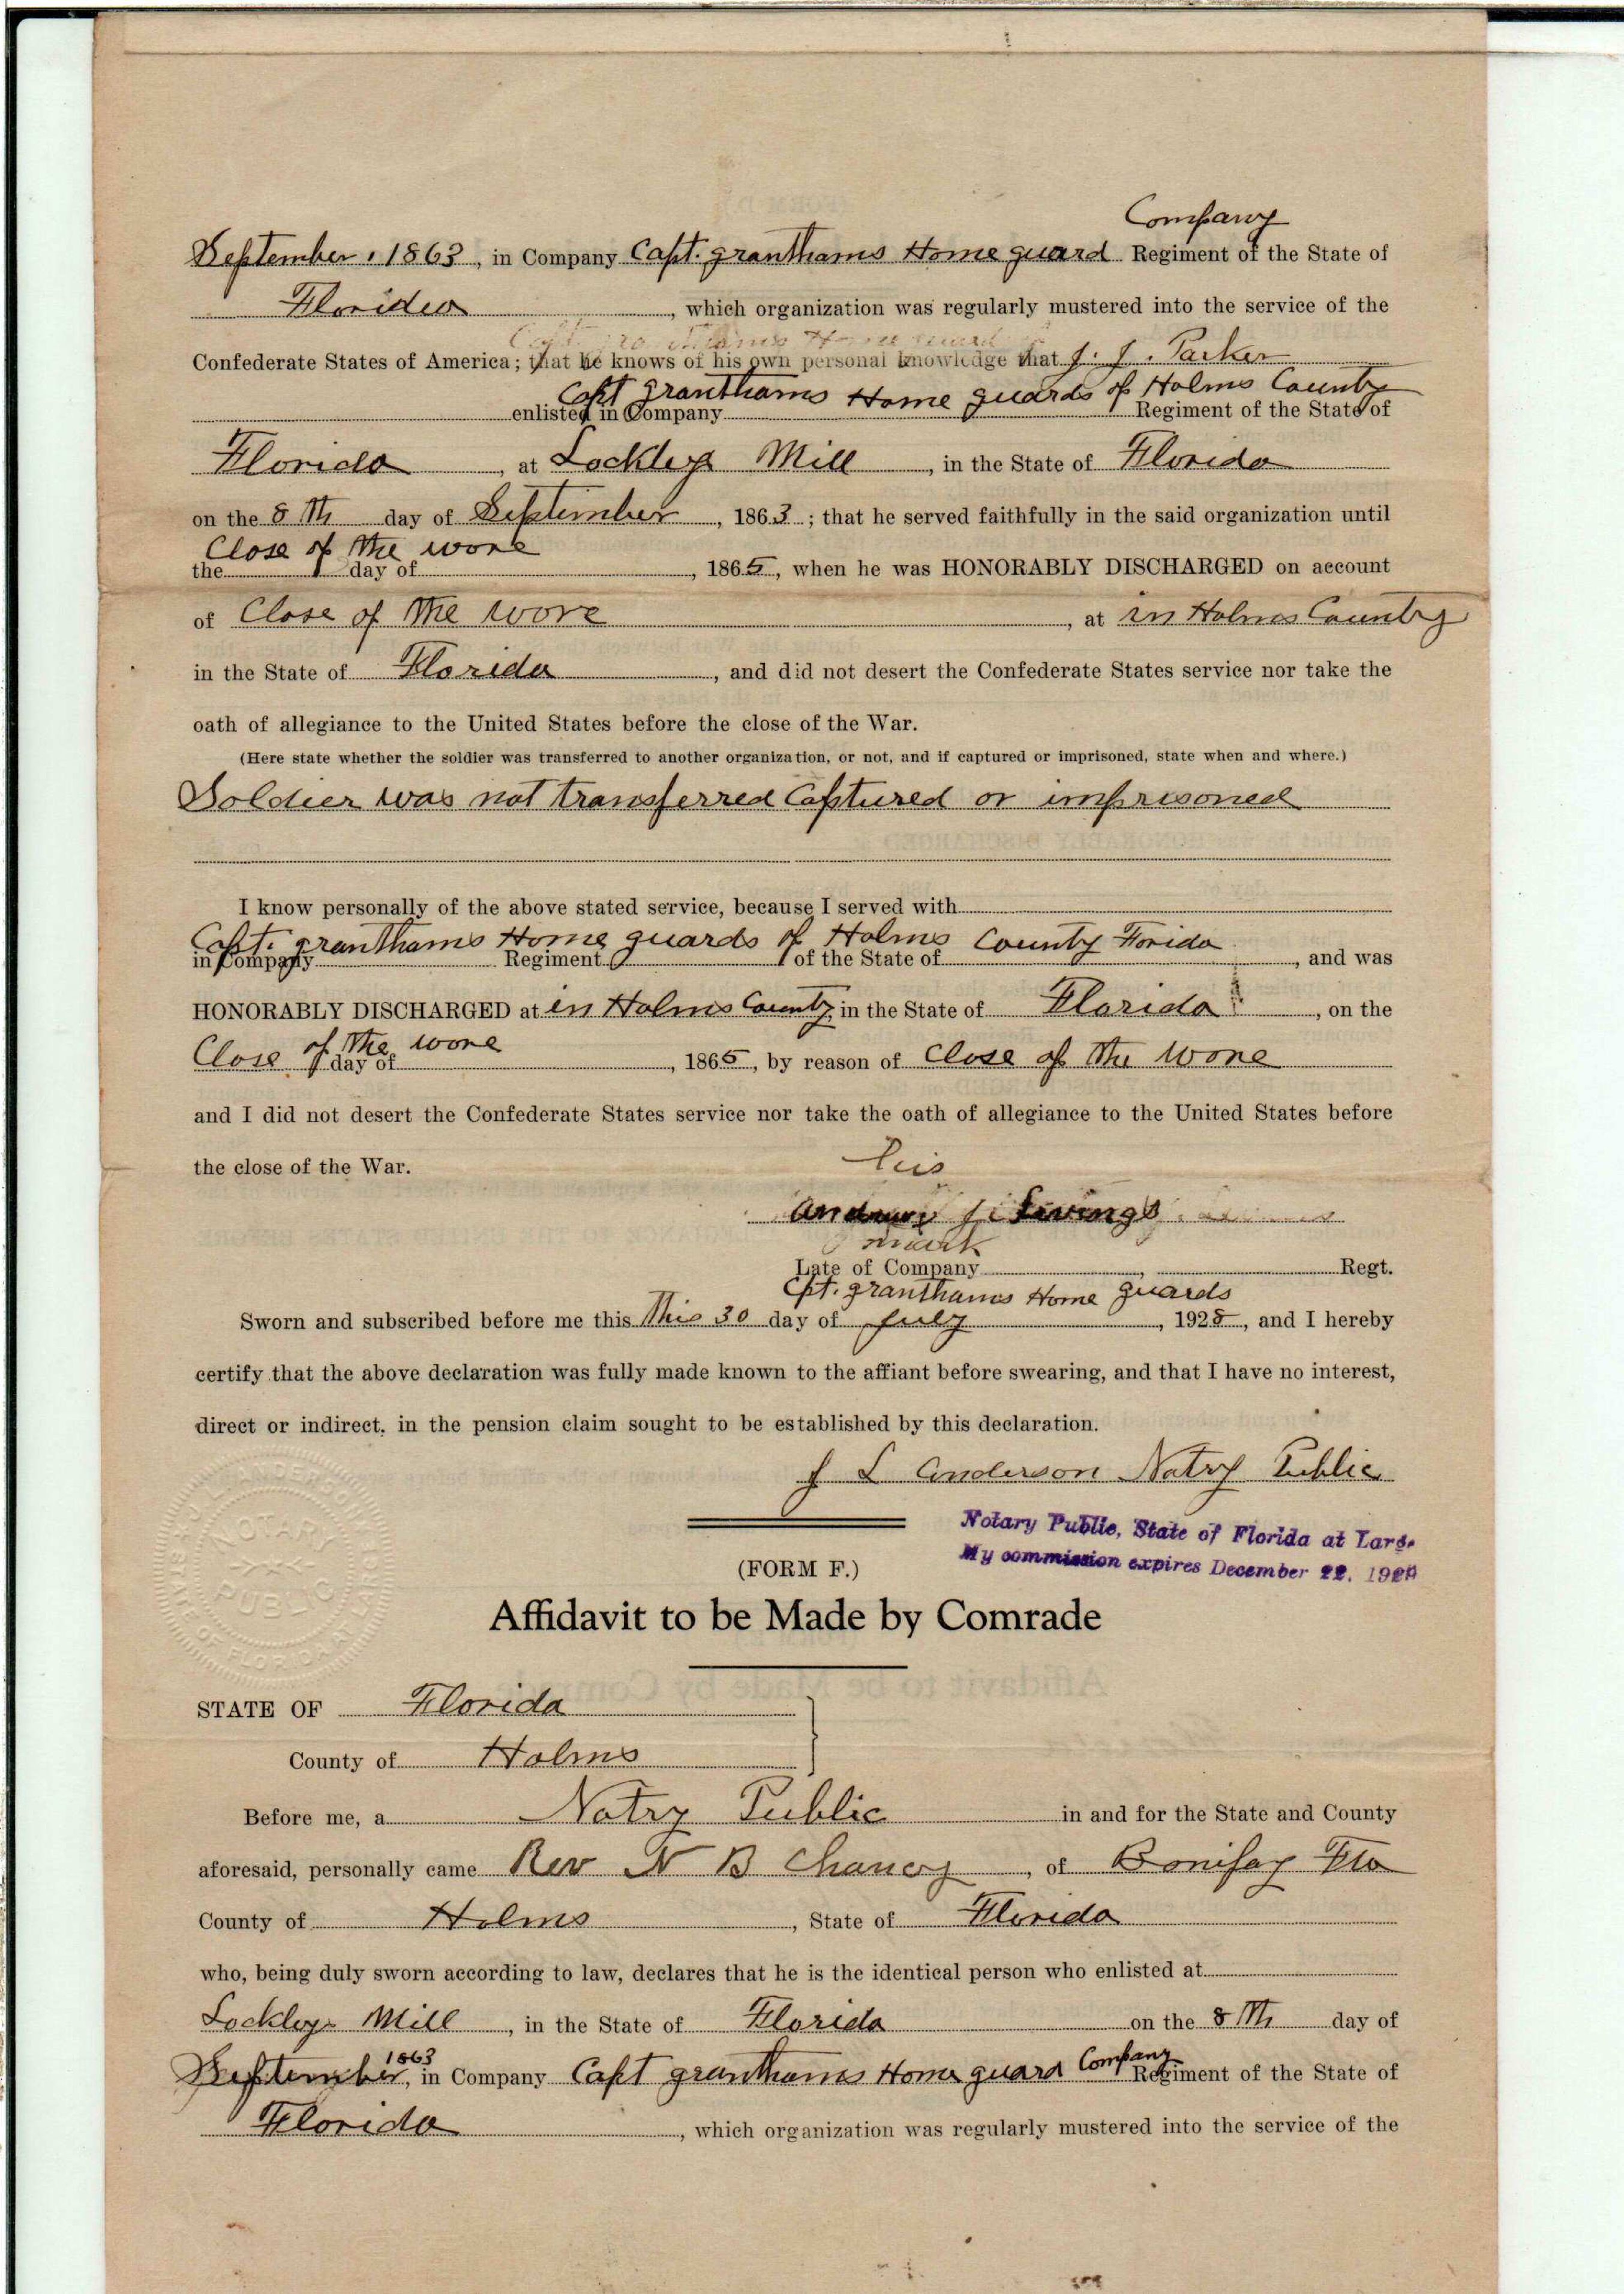 Company
September, 1863, in Company Capt. granthams Home guard Regiment of the State of
Florida, which organization was regularly mustered into the service of the
Confederate States of America; that he knows of his own personal knowledge that J. J. Parker
Capt granthams Home guards of Holms County
enlisted in Company Regiment of the State of
Florida, at Lockleys Mill, in the State of Florida
on the 8 Th day of September, 1863; that he served faithfully in the said organization until
Close of the wore
the day of , 1865, when he was HONORABLY DISCHARGED on account
of Close of the wore, at in Holms County
in the State of Florida, and did not desert the Confederate States service nor take the
oath of allegiance to the United States before the close of the War.
(Here state whether the soldier was transferred to another organization, or not, and if captured or imprisoned, state when and where.)
Soldier was not transferred Captured or imprisoned
I know personally of the above stated service, because I served with
Capt. granthams Home guards of Holms County Florida
in Company Regiment of the State of , and was
HONORABLY DISCHARGED at in Holms County in the State of Florida, on the
Close of the wore
day of , 1865, by reason of Close of the wore
and I did not desert the Confederate States service nor take the oath of allegiance to the United States before
the close of the War.
his
Andrew J.
mark
Late of Company Regt.
Cpt. granthams Home guards
Sworn and subscribed before me this This 30 day of July, 1928, and I hereby
certify that the above declaration was fully made known to the affiant before swearing, and that I have no interest,
direct or indirect, in the pension claim sought to be established by this declaration.
J L Anderson Notry Public
Notary Public, State of Florida at Large
My commission expires December 22,
NOTARY
PUBLIC
STATE OF FLORIDA AT LARGE
(FORM F.)
Affidavit to be Made by Comrade
STATE OF Florida
County of Holms
Before me, a Notry Public in and for the State and County
aforesaid, personally came Rev N B Chancy, of Bonifay Fla
County of Holms, State of Florida
who, being duly sworn according to law, declares that he is the identical person who enlisted at
Lockleys Mill, in the State of Florida on the 8 Th day of
September, 1863 in Company Capt granthams Home guard Company Regiment of the State of
Florida, which organization was regularly mustered into the service of the